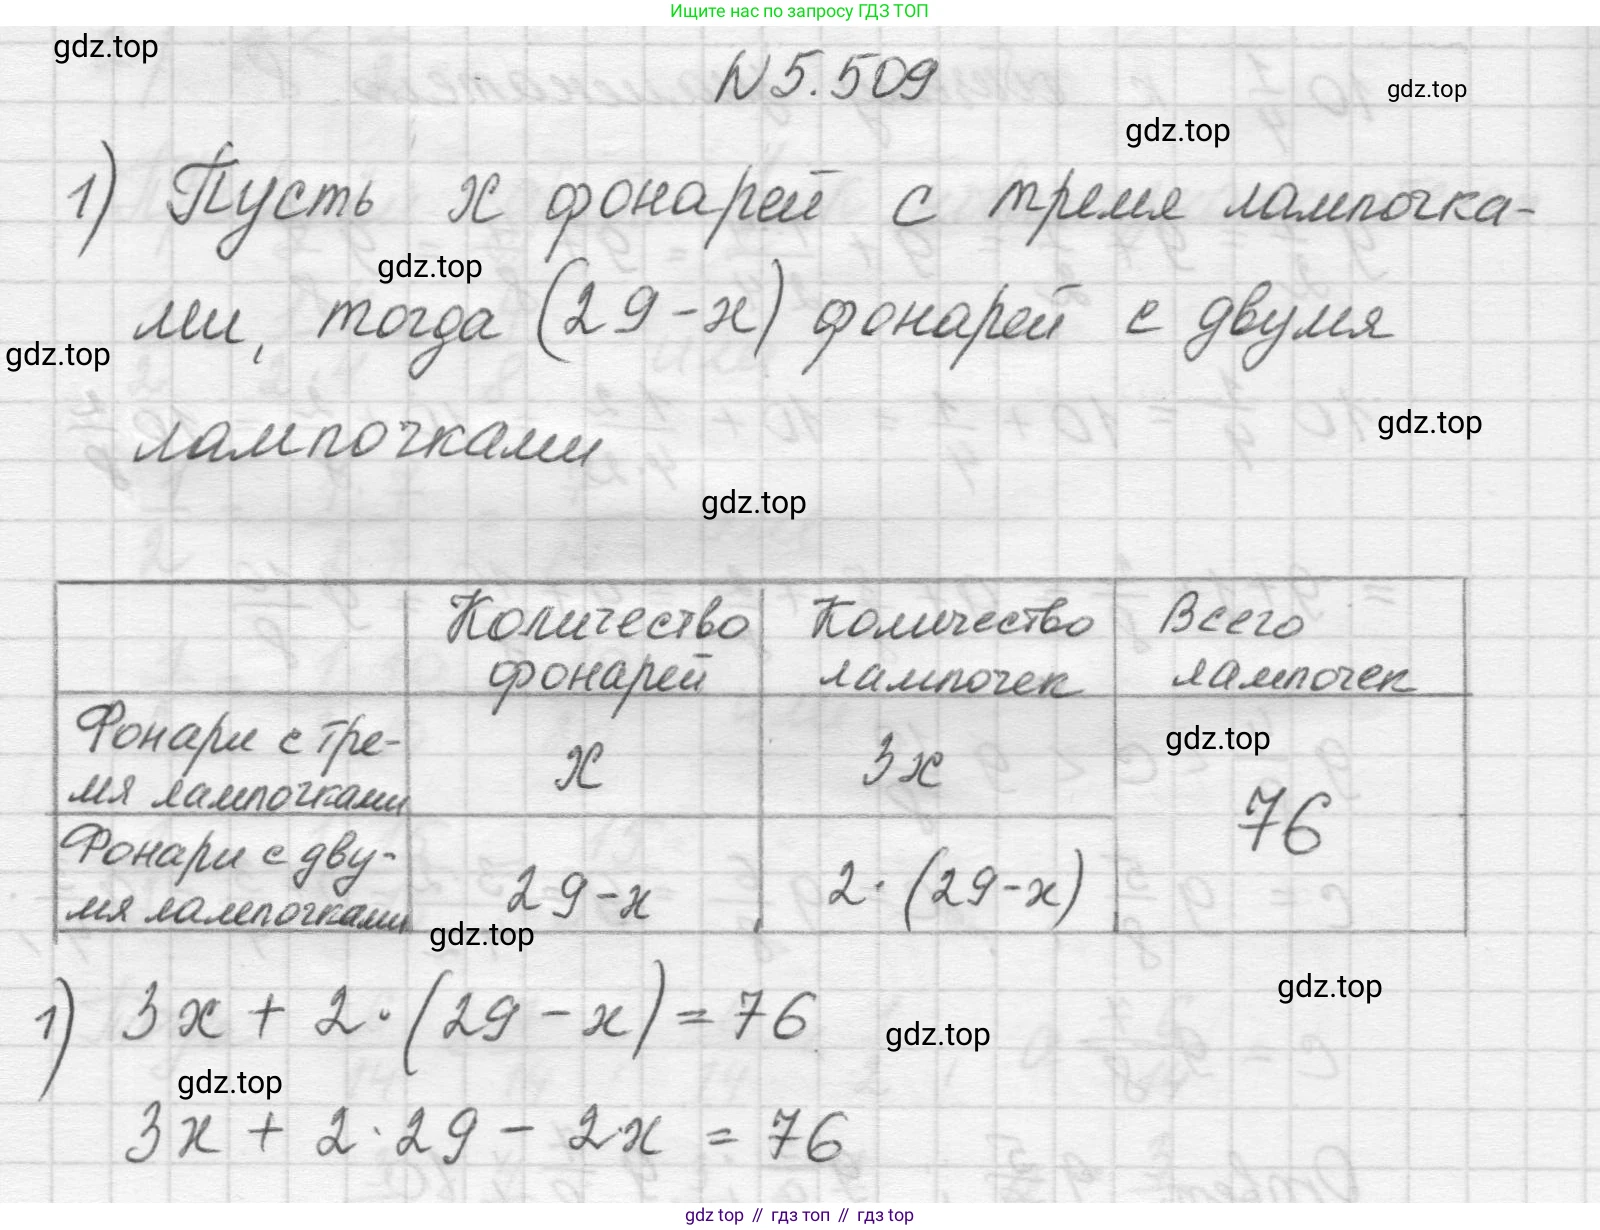 Ищите нас по запросу ГДЗ ТОП
gdz.top
N 5.509
gdz.top
gdz.top
1) Пусть x фонарей с тремя лампочка-
gdz.top
ми, тогда (29-x) фонарей с двумя
gdz.top
лампочками
gdz.top
gdz.top
Количество фонарей
Количество лампочек
Всего лампочек
Фонари с тре-
мя лампочками
x
3x
gdz.top
76
Фонари с дву-
мя лампочками
29-x
2·(29-x)
gdz.top
gdz.top
1) 3x + 2·(29-x)=76
gdz.top
gdz.top
3x + 2·29 - 2x = 76
gdz top // гдз топ // gdz top